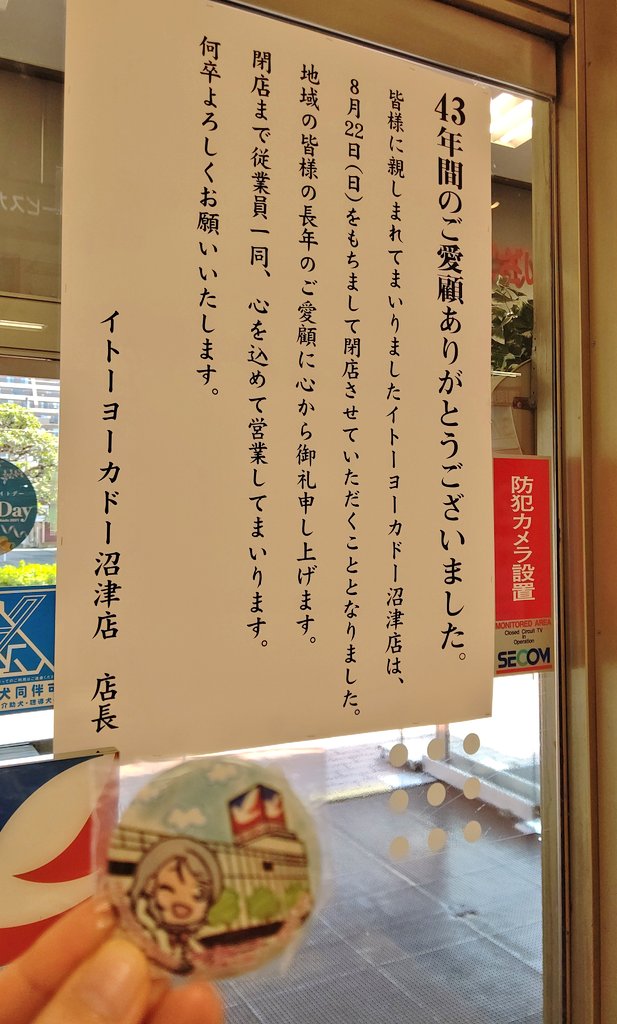 43年間のご愛顧ありがとうございました。
皆様に親しまれてまいりましたイトーヨーカドー沼津店は、
8月22日(日)をもちまして閉店させていただくこととなりました。
地域の皆様の長年のご愛顧に心から御礼申し上げます。
閉店まで従業員一同、心を込めて営業してまいります。
何卒よろしくお願いいたします。
イトーヨーカドー沼津店 店長
防犯カメラ設置
MONITORED AREA
Closed Circuit TV
in
Operation
SECOM
Day
犬同伴可
介助犬・聴導犬